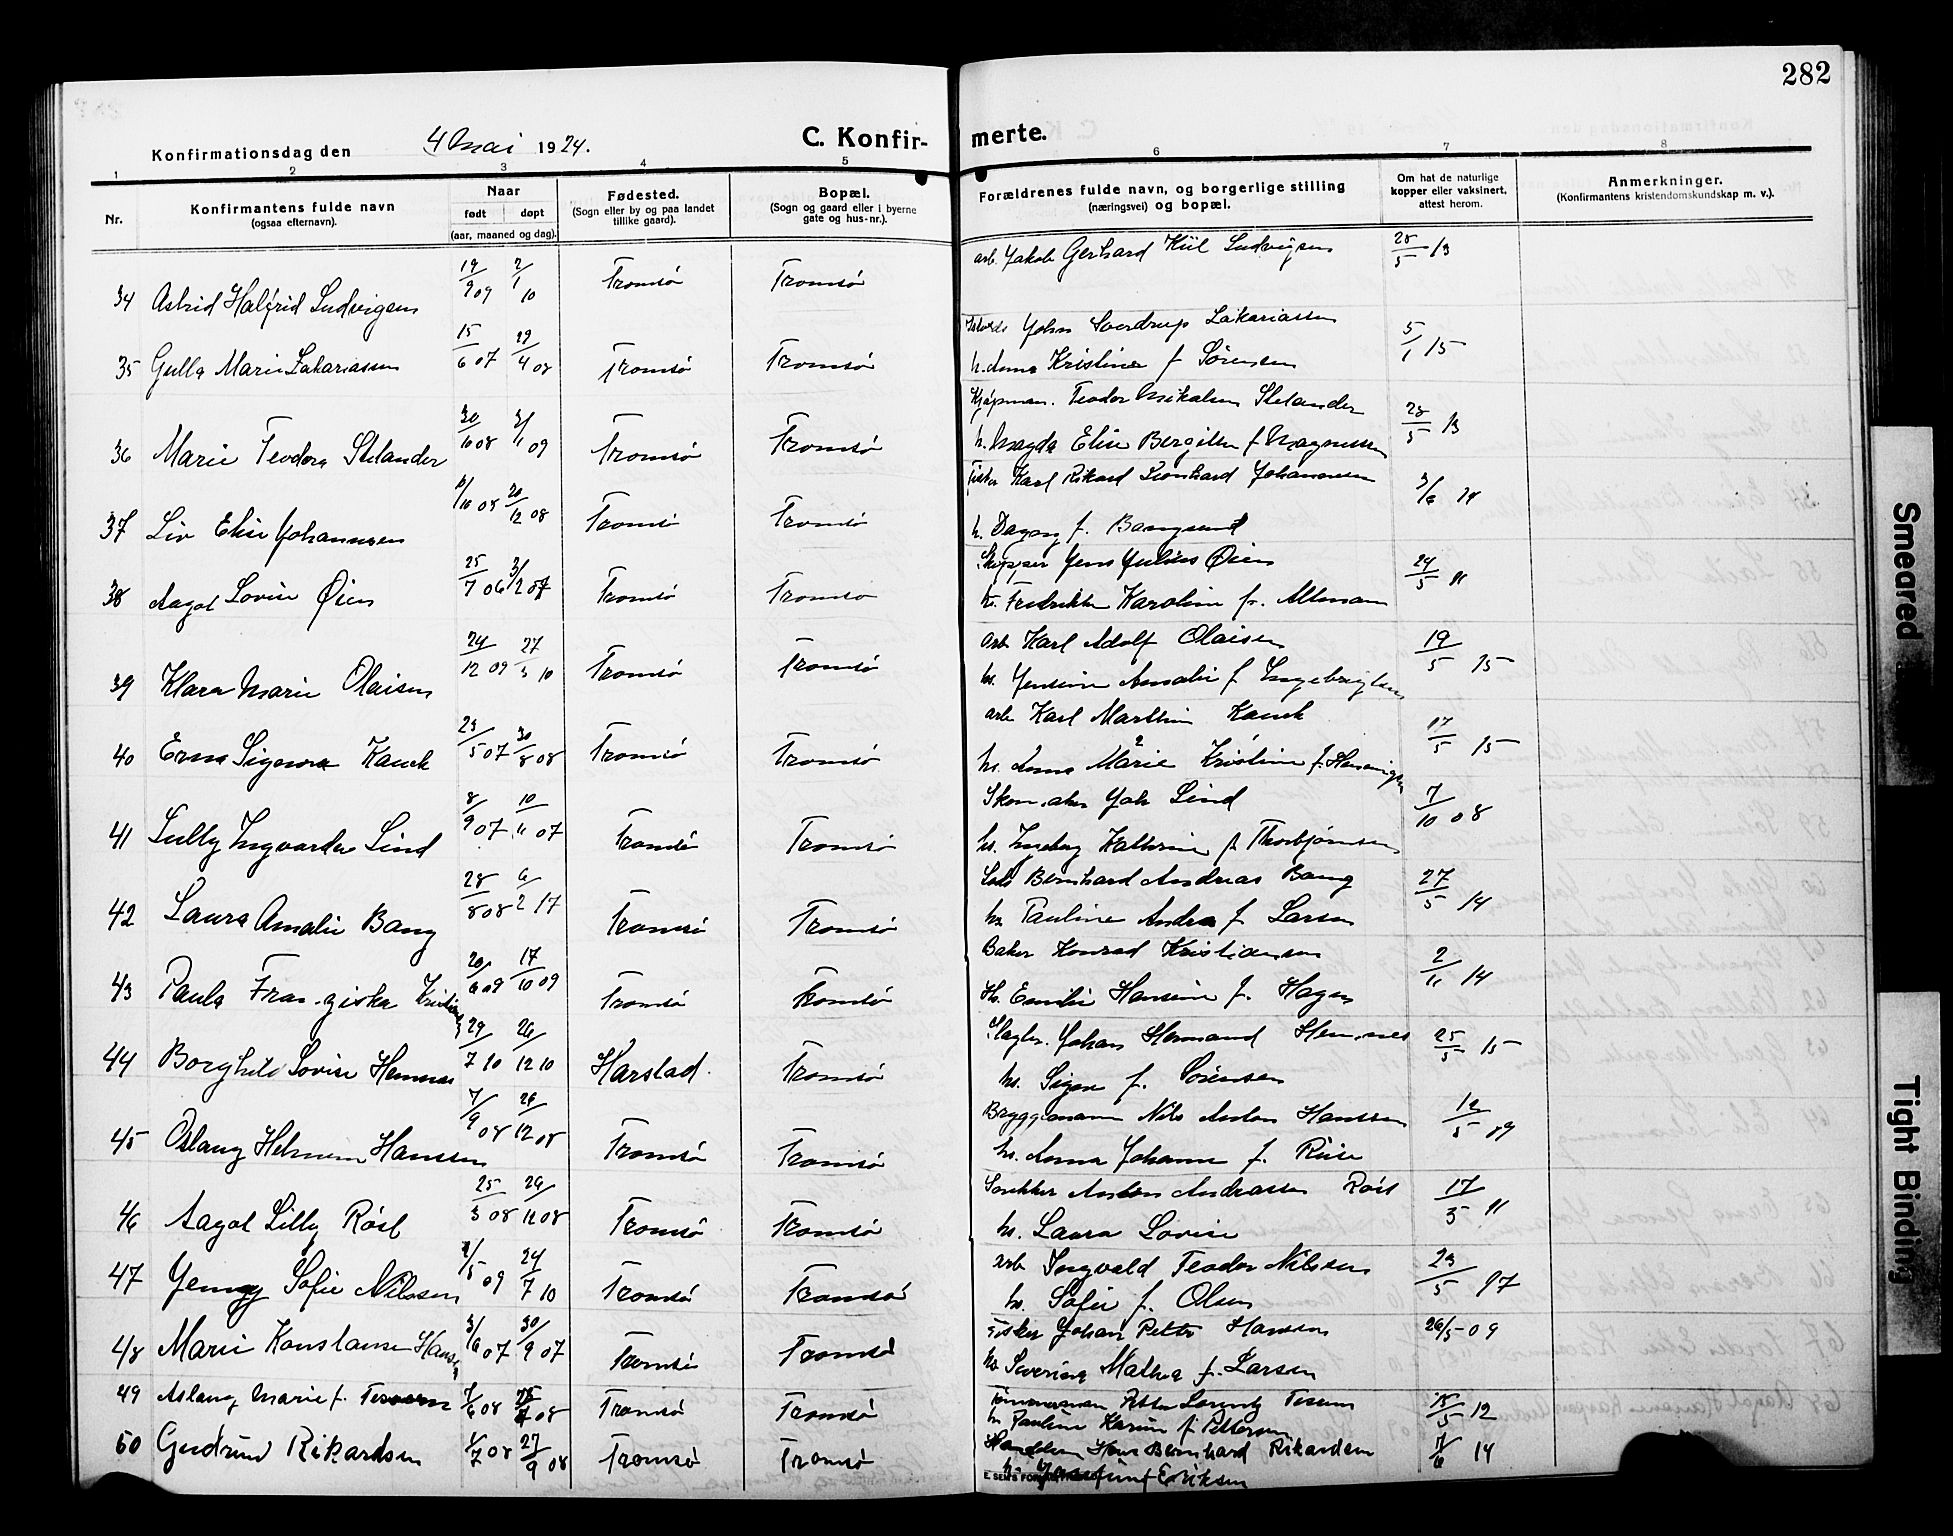 282
Konfirmationsdag den 4 mai 1924.
C. Konfirmerte.
1 2 3 4 5 6 7 8
Nr.
Konfirmantens fulde navn
(ogsaa efternavn).
Naar
født døpt
(aar, maaned og dag).
Fødested.
(Sogn eller by og paa landet
tillike gaard).
Bopæl.
(Sogn og gaard eller i byerne
gate og hus-nr.).
Forældrenes fulde navn, og borgerlige stilling
(næringsvei) og bopæl.
Om hat de naturlige
kopper eller vaksinert,
attest herom.
Anmerkninger.
(Konfirmantens kristendomskundskap m. v.).
34 Astrid Halfrid Ludvigsen 19/9 09 2/1 10 Tromsø Tromsø arb. Jakob Gerhard Kiil Ludvigsen 28/5 13
35 Gulla Marie Zakariassen 15/6 07 29/4 08 Tromsø Tromsø John Sverdrup Zakariassen 5/1 15
h. Anna Kristine f. Sørensen
36 Marie Teodora Stelander 30/10 08 3/1 09 Tromsø Tromsø Kjøpman. Teodor Mikalsen Stelander 28/5 13
h. Magda Elise Bergitte f. Magnussen
37 Liv Elise Johannesen 20/12 08 Tromsø Tromsø Fisker Karl Rikard Leonhard Johannesen
h. Dagny f. Bangsund
38 Aagot Lovise Øien 25/7 06 3/2 07 Tromsø Tromsø Skipper Jens Julius Øien 24/5 11
h. Fredrikke Karoline f. Altmann
39 Klara Marie Olaisen 24/12 09 27/3 10 Tromsø Tromsø arb Karl Adolf Olaisen 19/5 15
h. Jensine Amalie f. Ingebrigtsen
40 Erna Signora Kauck 23/5 07 30/8 08 Tromsø Tromsø arb Karl Marthin Kauck 17/5 15
h. Anna Marie Kristine f. Henningsen
41 Lully Ingvarda Lind 8/9 07 10/11 07 Tromsø Tromsø Skomaker Joh Lind 7/10 08
h. Ingeborg Kathrine f. Thorbjørnsen
42 Laura Amalie Bang 28/8 08 6/2 17 Tromsø Tromsø Lods Bernhard Andreas Bang 27/5 14
h. Pauline Andrea f. Larsen
43 Paula Franziska Kristiansen 20/6 09 17/10 09 Tromsø Tromsø Baker Konrad Kristiansen 2/11 14
h. Emilie Hansine f. Hagen
44 Borghild Lovise Hemnes 29/7 10 26/12 10 Harstad. Tromsø Slagter. Johan Hermand Hemnes 25/5 15
h. Signe f. Sørensen
45 Aslaug Helmine Hanssen 7/9 08 26/12 08 Tromsø Tromsø Bryggemann Nils Anton Hanssen 12/5 09
h. Anna Johanne f. Riise
46 Aagot Lilly Røst 25/3 08 29/11 08 Tromsø Tromsø Snekker Anton Andreassen Røst 17/5 11
h. Laura Lovise
47 Jenny Sofie Nilssen 1/5 09 24/7 10 Tromsø Tromsø arb Ingvald Teodor Nilssen 23/5 17
h. Sofie f. Olsen
48 Marie Konstanse Hansen 3/6 07 30/9 07 Tromsø Tromsø Fisker Johan Petter Hansen 26/5-09
h. Severine Mathea f. Larsen
49 Aslaug Marie f. Tessem 7/6 08 Tromsø Tromsø Tømmerman Petter Lorentz Tessem 18/5 12
h. Pauline Karine f. Pettersen
50 Gudrun Rikardsen 1/7 08 27/9 08 Tromsø Tromsø Handelsm Hans Bernhard Rikardsen 7/6 14
h. Josefine f Eriksen
Smeared
Tight Binding